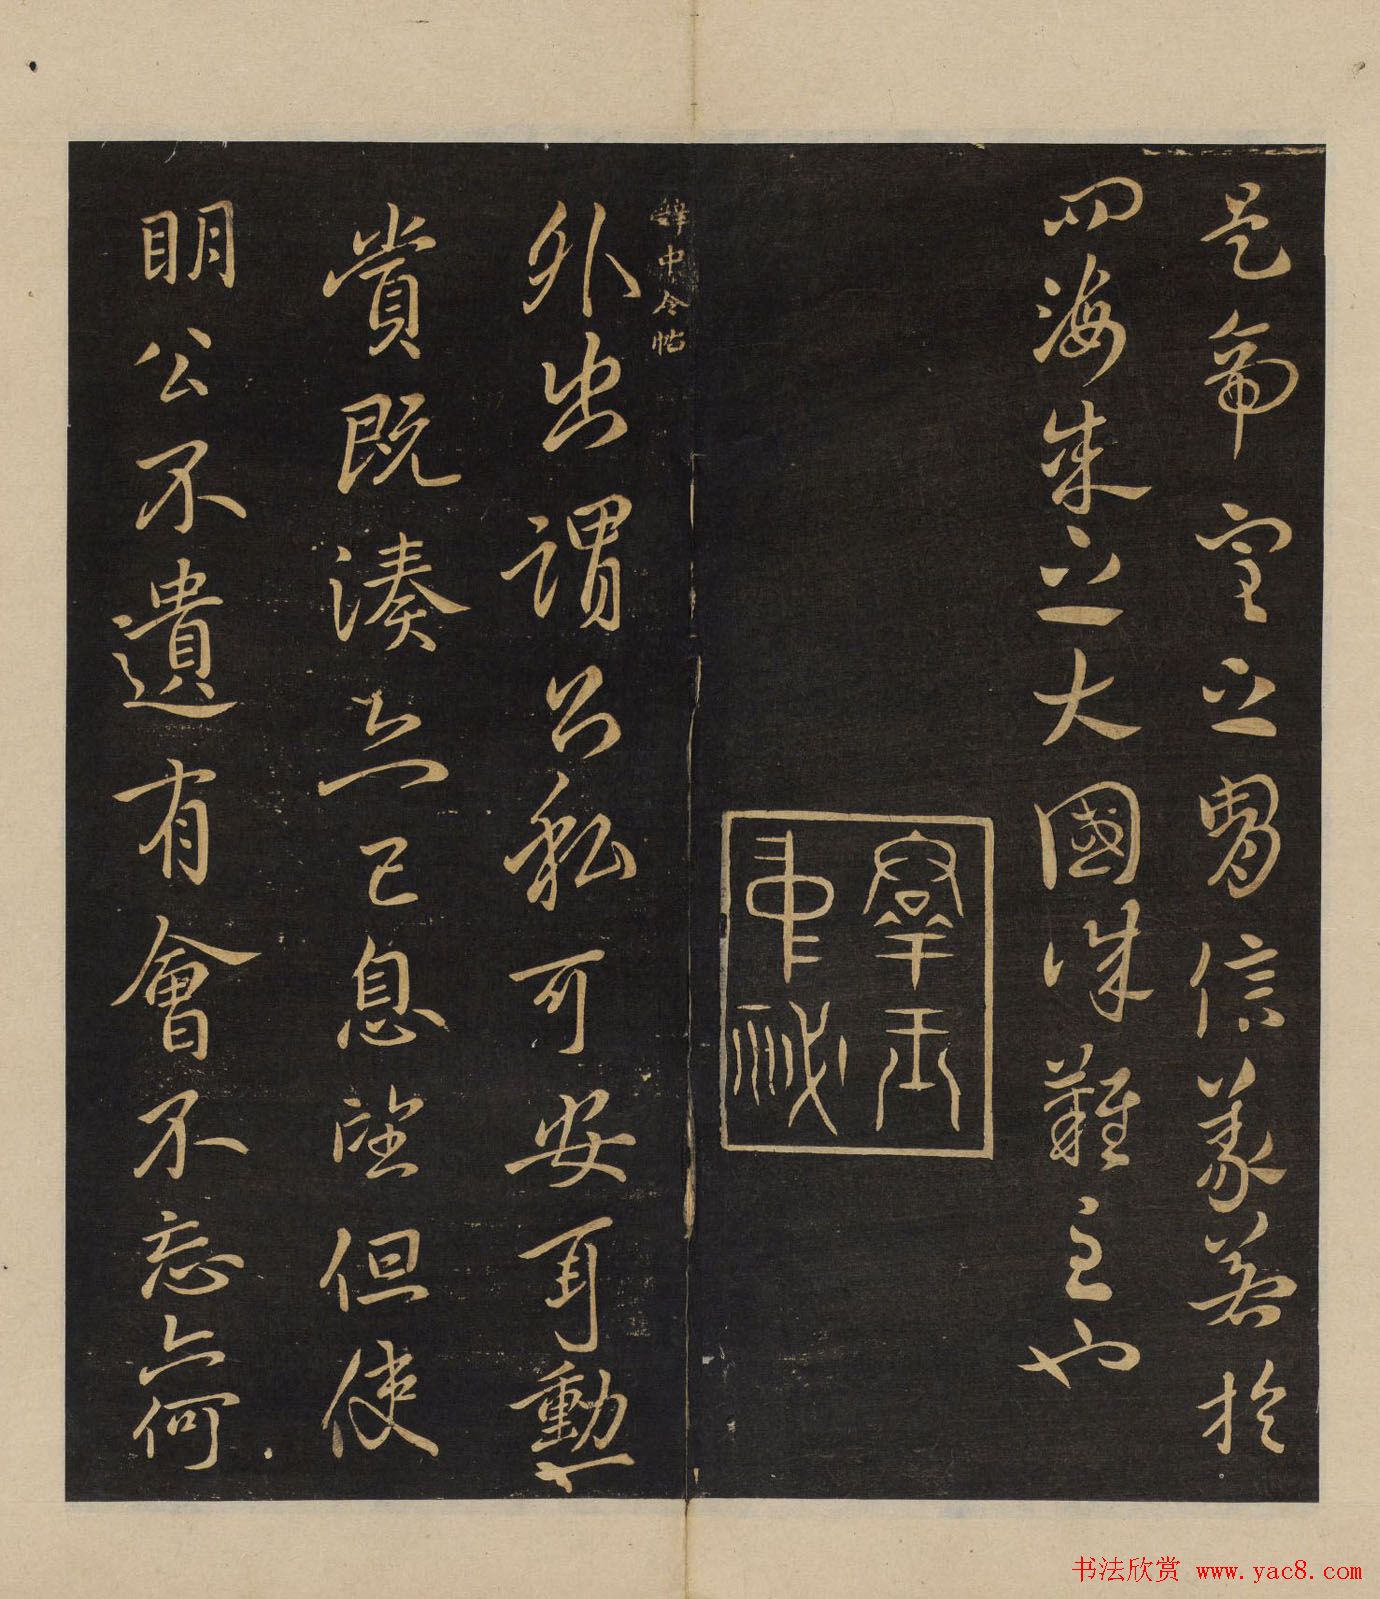 是帝室之胄信義著於
四海之大國誅難之也
羣玉中祕
辭中令帖
外出謂公私可安耳勳
賞既湊亦已息望但使
明公不遺有會不忘亦何
书法欣赏 www.yac8.com